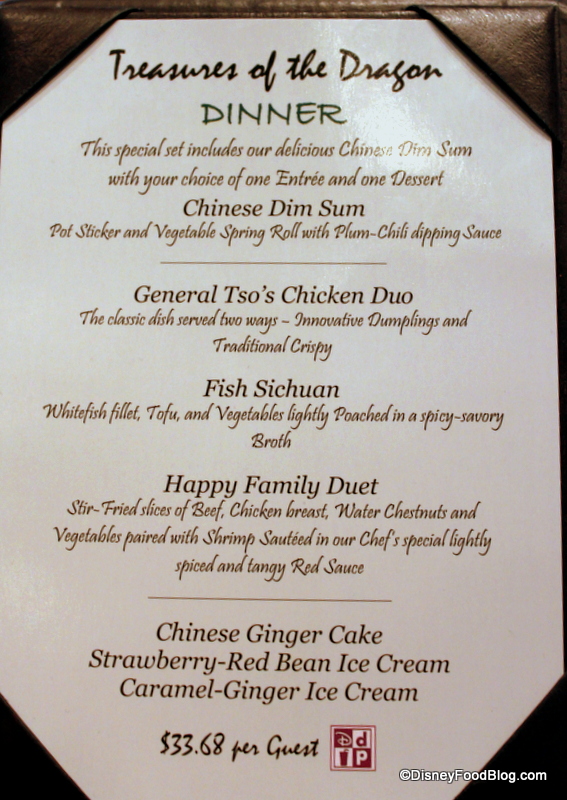 Treasures of the Dragon
DINNER
This special set includes our delicious Chinese Dim Sum
with your choice of one Entrée and one Dessert
Chinese Dim Sum
Pot Sticker and Vegetable Spring Roll with Plum-Chili dipping Sauce
General Tso's Chicken Duo
The classic dish served two ways – Innovative Dumplings and
Traditional Crispy
Fish Sichuan
Whitefish fillet, Tofu, and Vegetables lightly Poached in a spicy-savory
Broth
Happy Family Duet
Stir-Fried slices of Beef, Chicken breast, Water Chestnuts and
Vegetables paired with Shrimp Sautéed in our Chef's special lightly
spiced and tangy Red Sauce
Chinese Ginger Cake
Strawberry-Red Bean Ice Cream
Caramel-Ginger Ice Cream
$33.68 per Guest
©DisneyFoodBlog.com